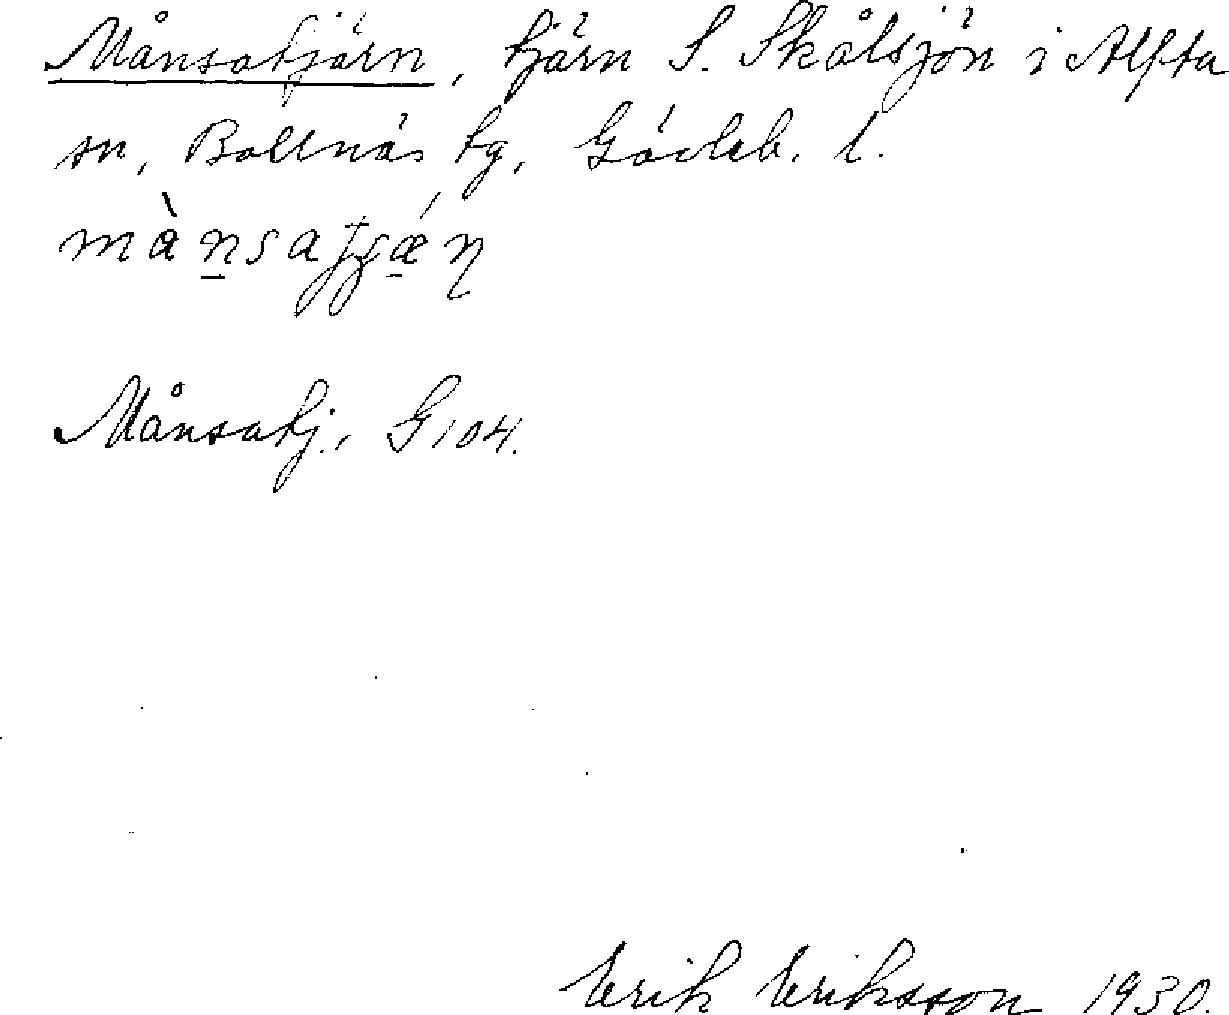 Månsatjärn, tjärn S. Skålsjön i Alfta
sn, Bollnäs tg, Gävleb. l.
Månsatj., G 104.
Erik Eriksson 1930.